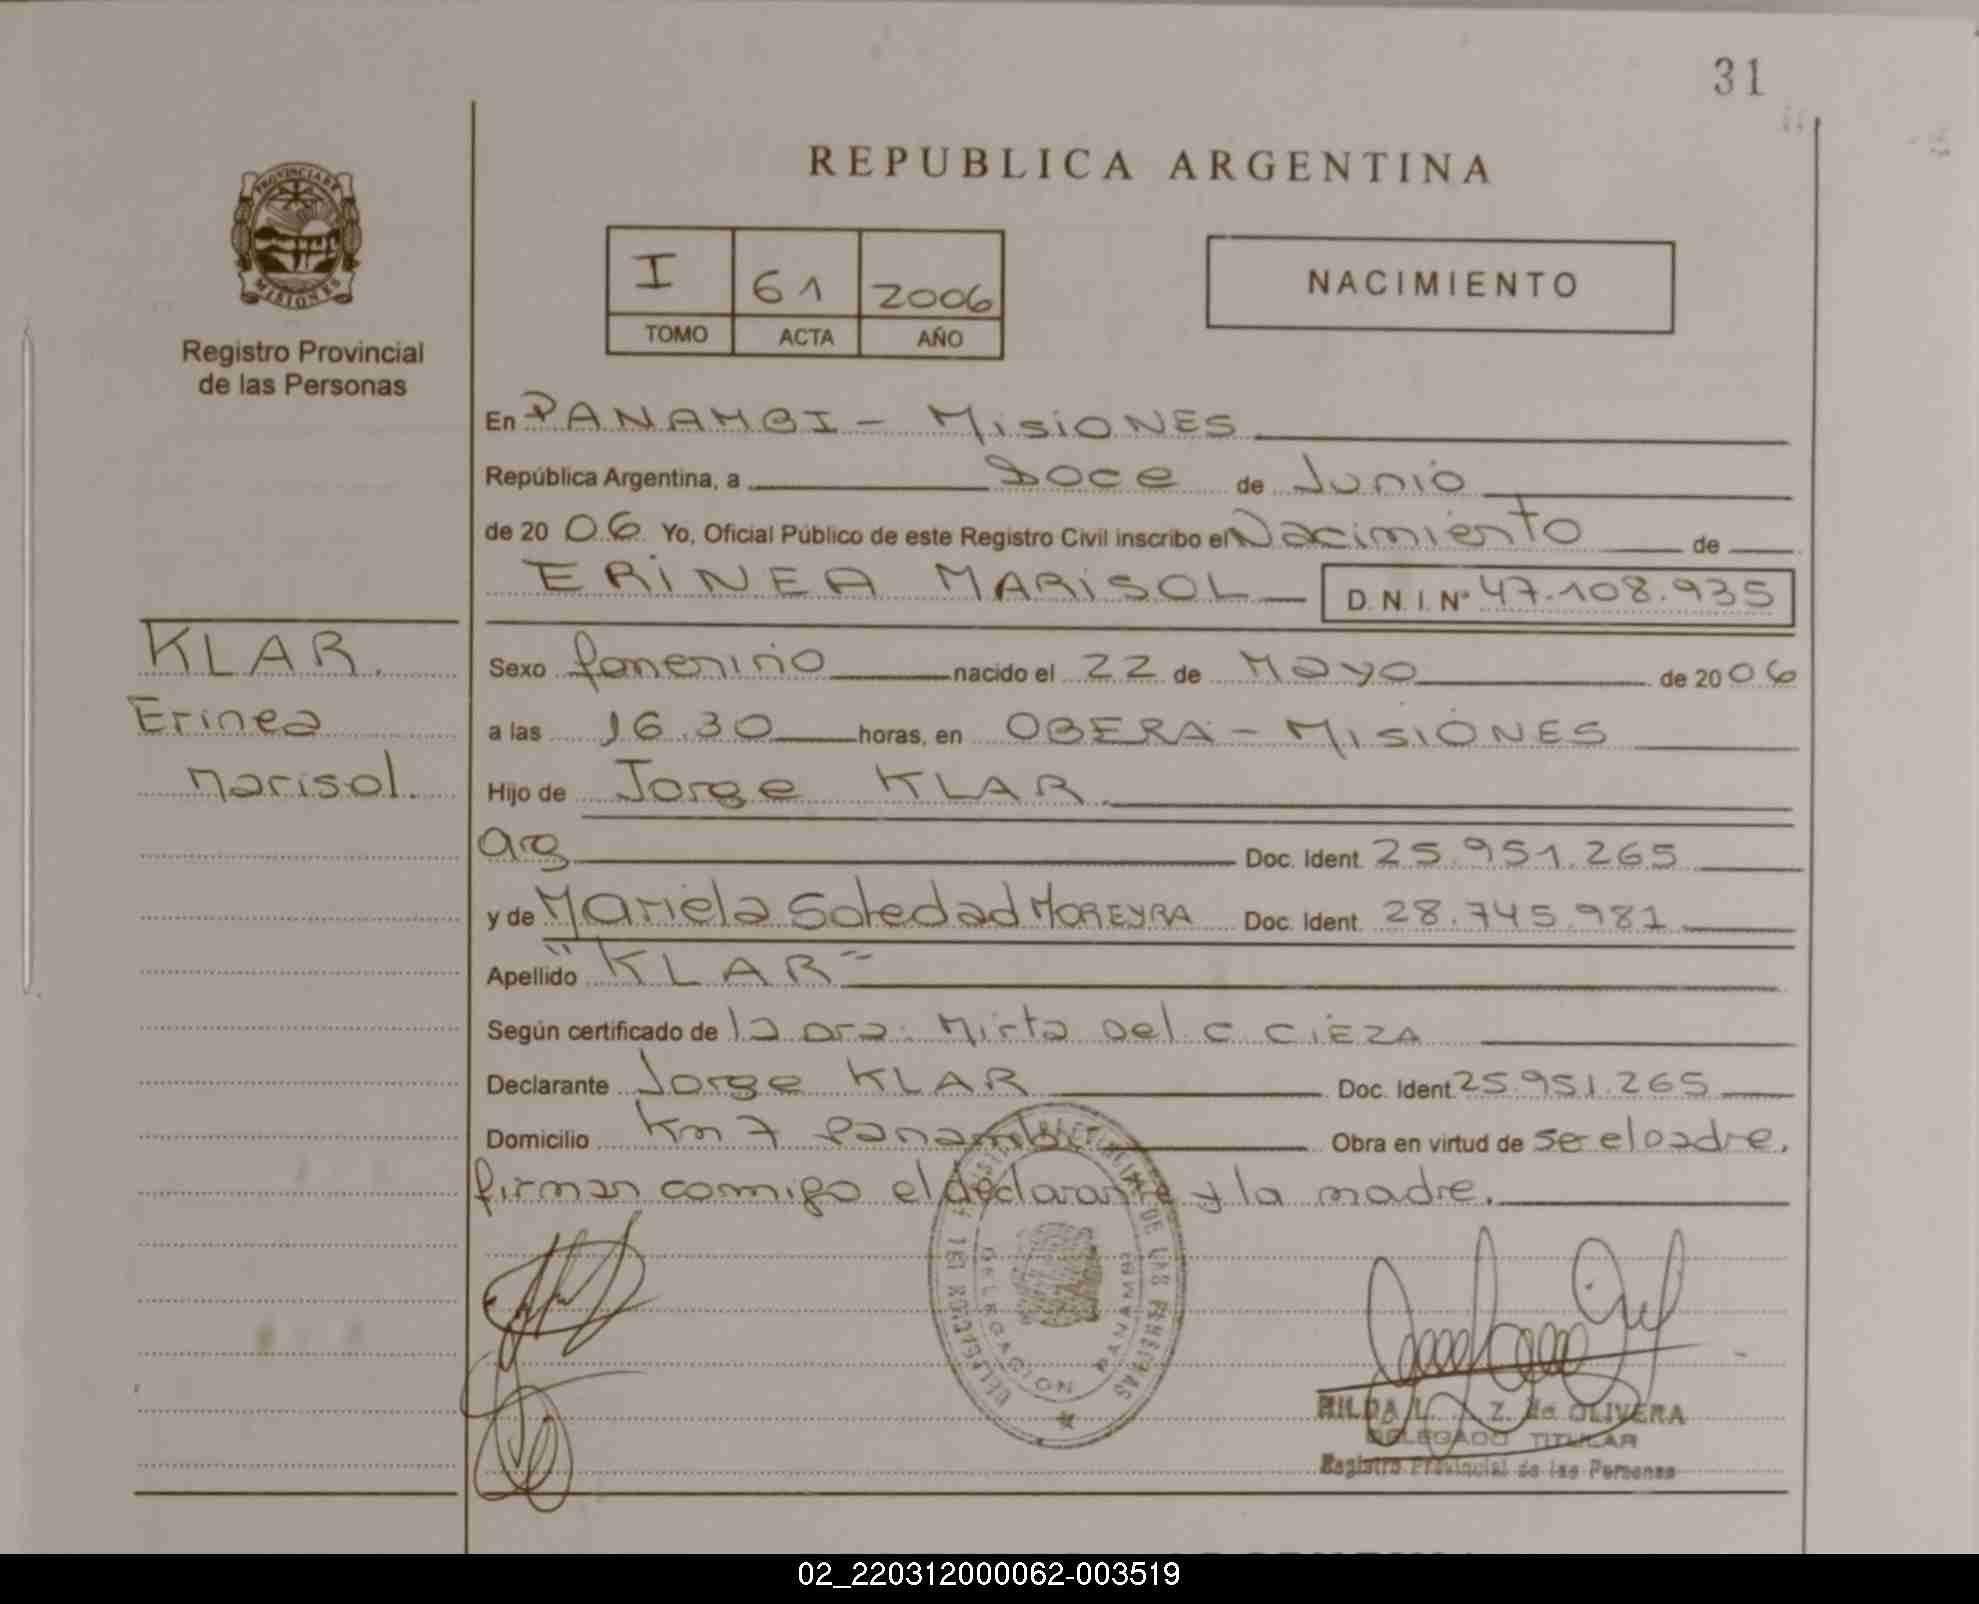 31
REPUBLICA ARGENTINA
PROVINCIA DE
MISIONES
Registro Provincial
de las Personas
I 61 2006
TOMO ACTA AÑO
NACIMIENTO
En PANAMBI - MISIONES
República Argentina, a Doce de Junio
de 2006 Yo, Oficial Público de este Registro Civil inscribo el Nacimiento de
ERINEA MARISOL D.N.I. Nº 47.108.935
KLAR.
Erinea
Marisol.
Sexo femenino nacido el 22 de Mayo de 2006
a las 16.30 horas, en OBERA - MISIONES
Hijo de Jorge KLAR
arg Doc. Ident. 25.951.265
y de Mariela Soledad MOREYRA Doc. Ident. 28.745.981
Apellido "KLAR"
Según certificado de la Dra. Mirta del C. CIEZA
Declarante Jorge KLAR Doc. Ident. 25.951.265
Domicilio Km 7 Panambi Obra en virtud de se el padre.
firman conmigo el declarante y la madre.
DE LAS PERSONAS
DELEGACION PANAMBI
HILDA L. Z. de OLIVERA
DELEGADO TITULAR
Registro Provincial de las Personas
02_220312000062-003519